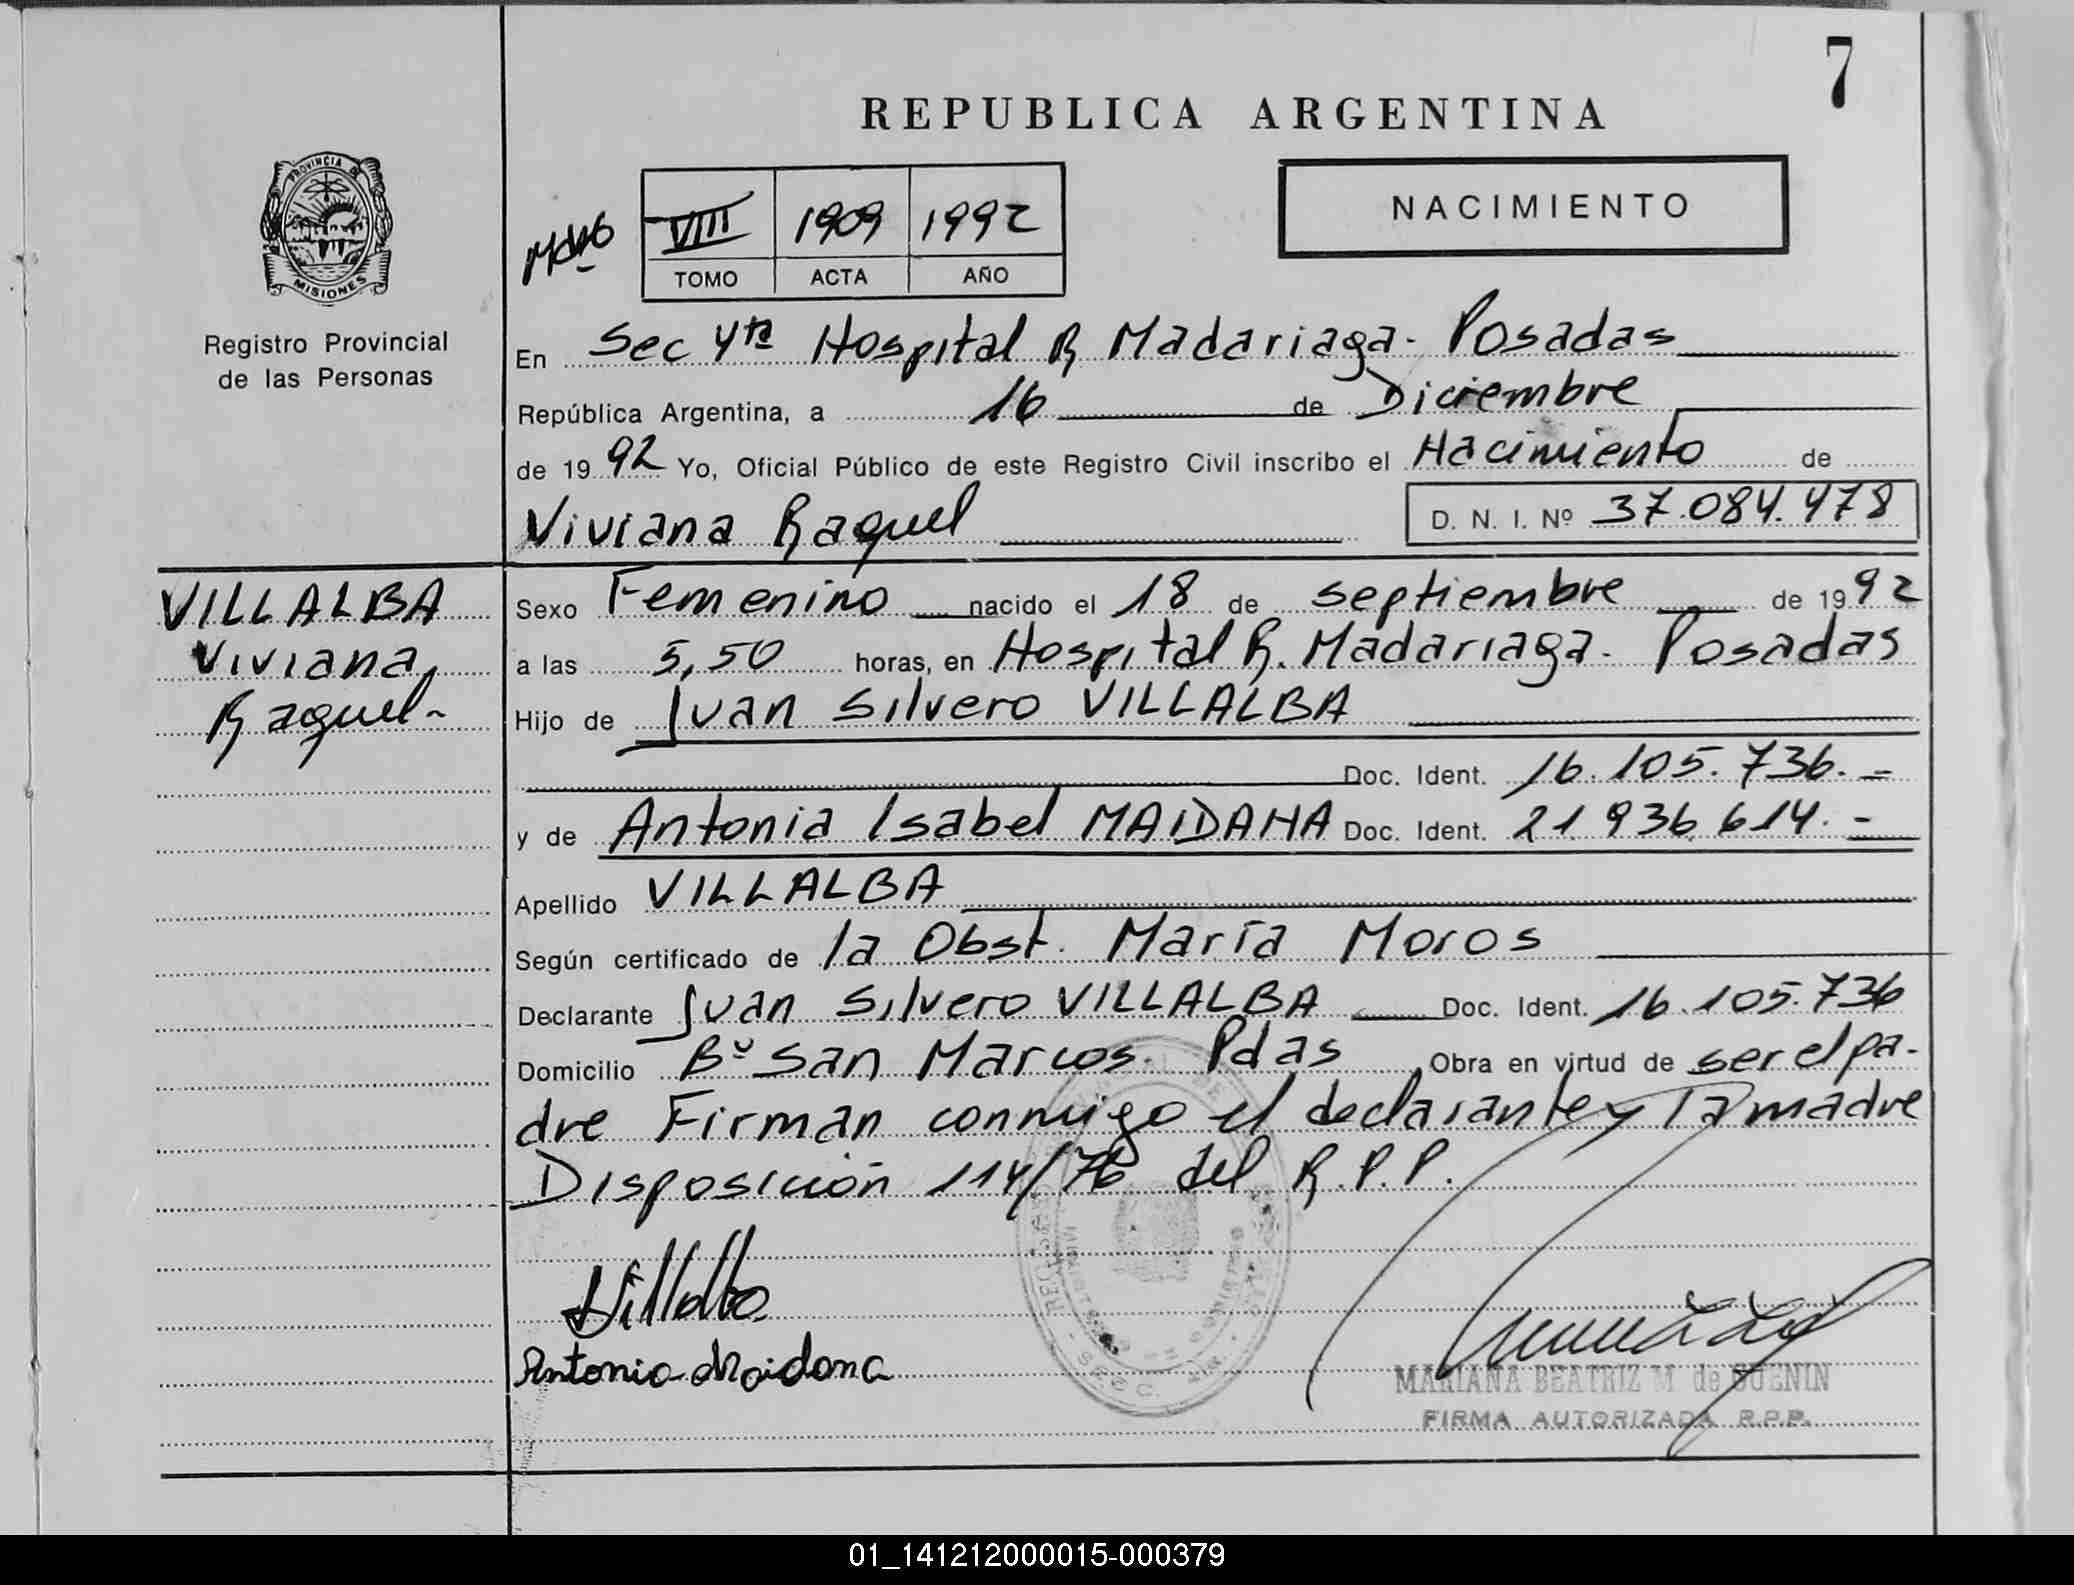 7
REPUBLICA ARGENTINA
PROVINCIA DE
MISIONES
NACIMIENTO
VIII 1909 1992
TOMO ACTA AÑO
Registro Provincial
de las Personas
En Sec 4ta Hospital R Madariaga - Posadas
República Argentina, a 16 de Diciembre
de 1992 Yo, Oficial Público de este Registro Civil inscribo el Nacimiento de
Viviana Raquel D. N. I. Nº 37.084.478
VILLALBA
Viviana,
Raquel-
Sexo Femenino nacido el 18 de septiembre de 1992
a las 5,50 horas, en Hospital R. Madariaga - Posadas
Hijo de Juan Silvero VILLALBA
Doc. Ident. 16.105.736.-
y de Antonia Isabel MAIDANA Doc. Ident. 21 936 614.-
Apellido VILLALBA
Según certificado de la Obst. María Moros
Declarante Juan Silvero VILLALBA Doc. Ident. 16.105.736
Domicilio Bº San Marcos. Pdas Obra en virtud de ser el pa-
dre Firman conmigo el declarante y la madre
Disposición 114/76 del R.P.P.
Villalba
Antonia Maidana
MARIANA BEATRIZ M. de GUENIN
FIRMA AUTORIZADA R.P.P.
01_141212000015-000379